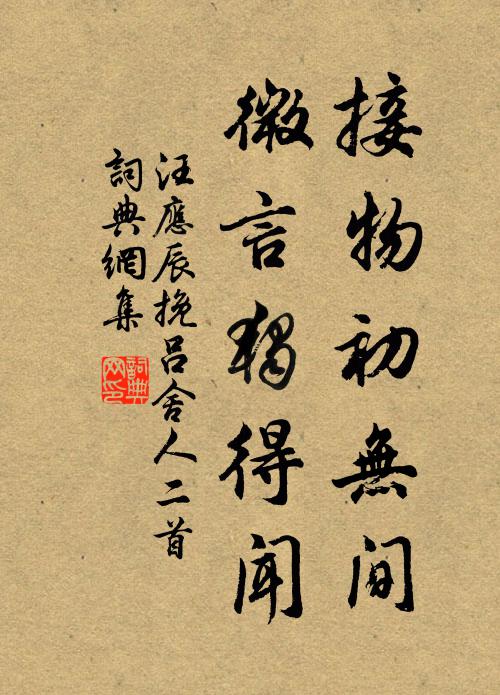 接物初無間
微言獨得聞
汪應辰挽呂舍人二首
詞典網集
詞典网印